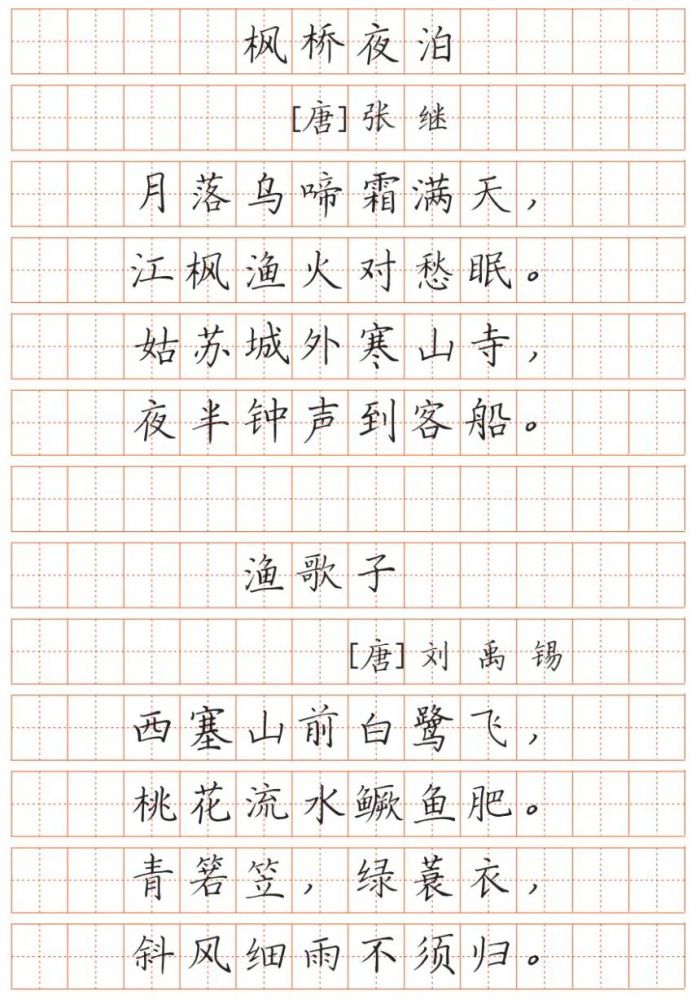 枫桥夜泊
[唐]张继
月落乌啼霜满天，
江枫渔火对愁眠。
姑苏城外寒山寺，
夜半钟声到客船。
渔歌子
[唐]刘禹锡
西塞山前白鹭飞，
桃花流水鳜鱼肥。
青箬笠，绿蓑衣，
斜风细雨不须归。